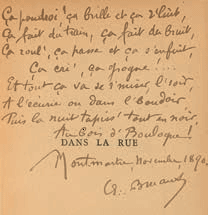 Ça poudroi' ! ça brille et ça r'luit,
Ça fait du train, ça fait du bruit,
Ça roul', ça passe et ça s'enfuit,
Ça cri', ça grogne !...
Et tout ça va se r'miser, l'soir,
A l'écurie ou dans l'boudoir
Puis la nuit tapiss' tout en noir,
Au Bois d'Boulogne !
DANS LA RUE
Montmartre, Novembre 1890.
A. Bruant